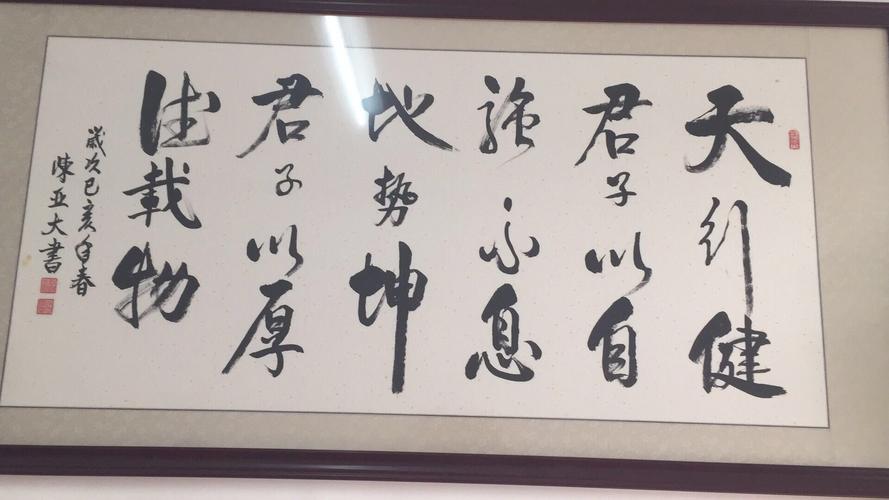 天行健
君子以自
強不息
地勢坤
君子以厚
德載物
歲次己亥年春
陳亚大書